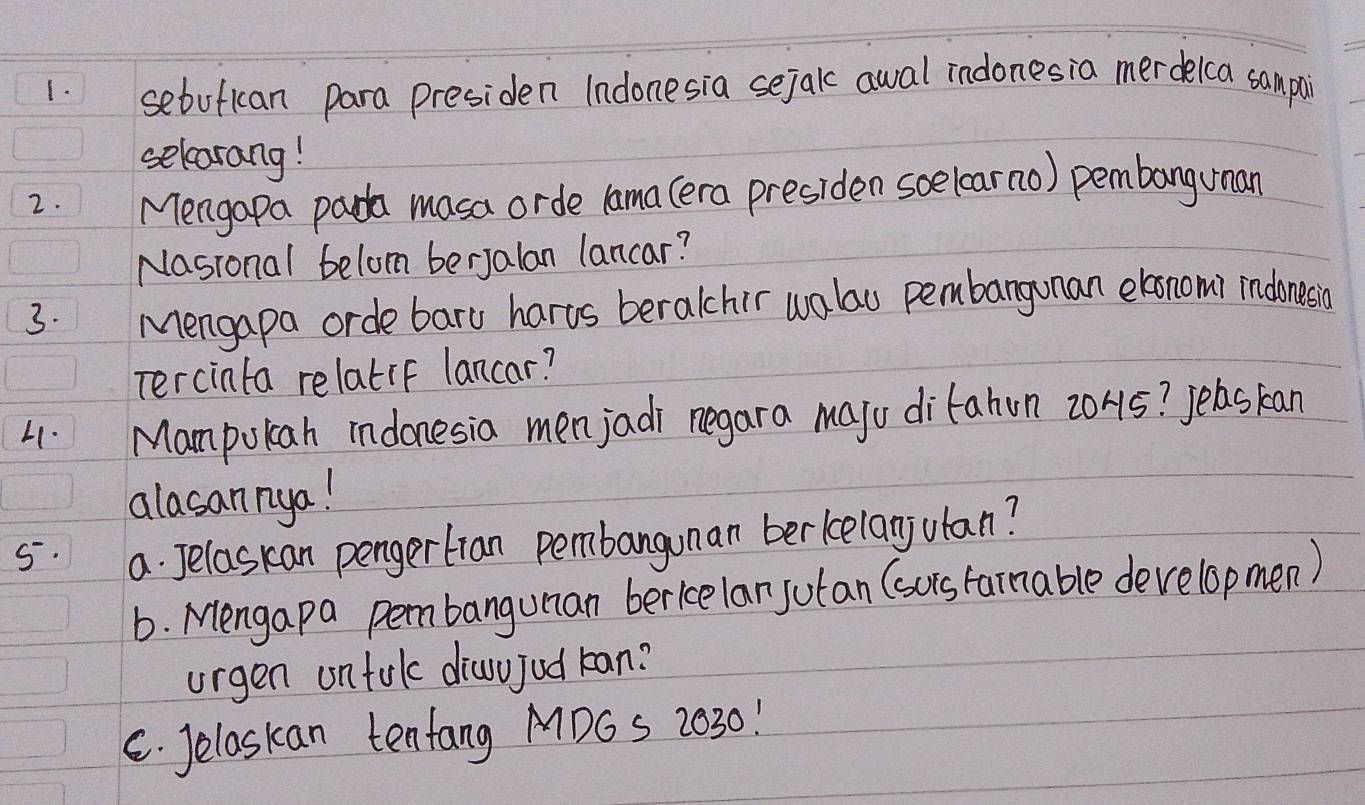 1. sebutkan para presiden Indonesia sejak awal indonesia merdeka sampai
sekarang!
2. Mengapa pada masa orde lama (era presiden soekarno) pembangunan
Nasional belum berjalan lancar?
3. Mengapa orde baru harus berakhir walau pembangunan ekonomi indonesia
Tercinta relatif lancar?
4. Mampukah indonesia menjadi negara maju di tahun 2045? jelaskan
alasannya!
5. a. Jelaskan pengertian pembangunan berkelanjutan?
b. Mengapa pembangunan berkelanjutan (suistainable developmen)
urgen untuk diwujudkan?
c. Jelaskan tentang MDGs 2030!